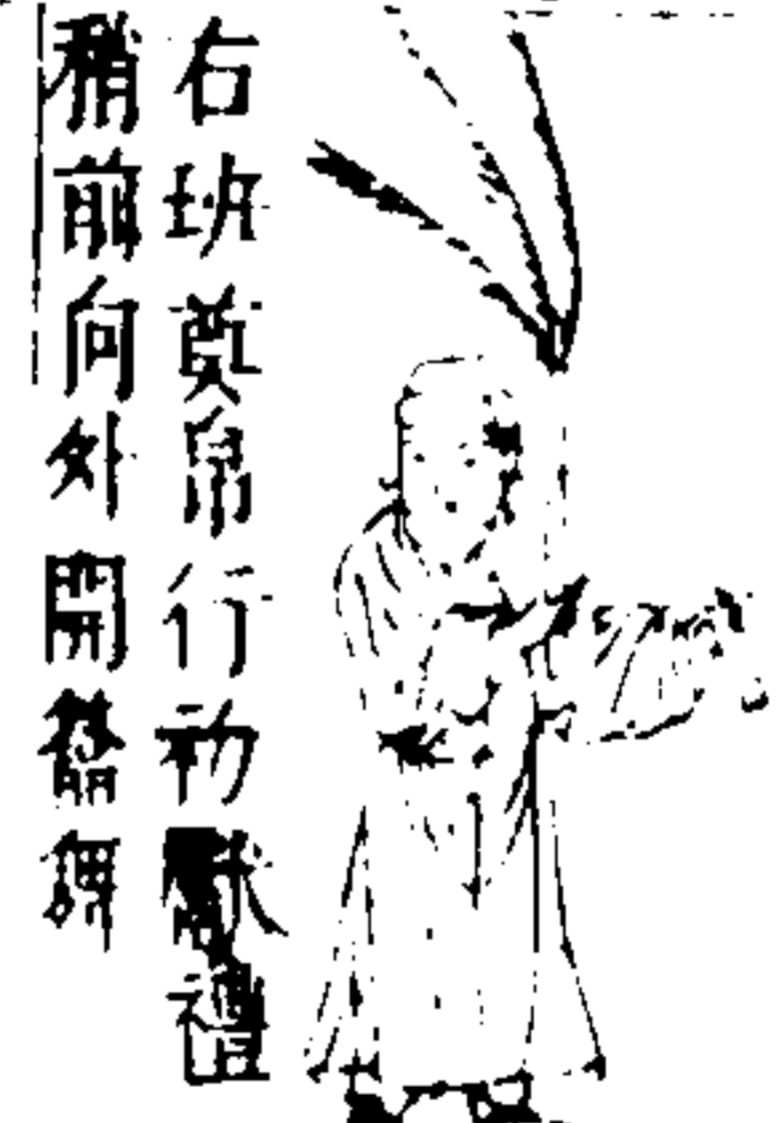 右班奠帛行初獻禮
稍前向外開籥舞